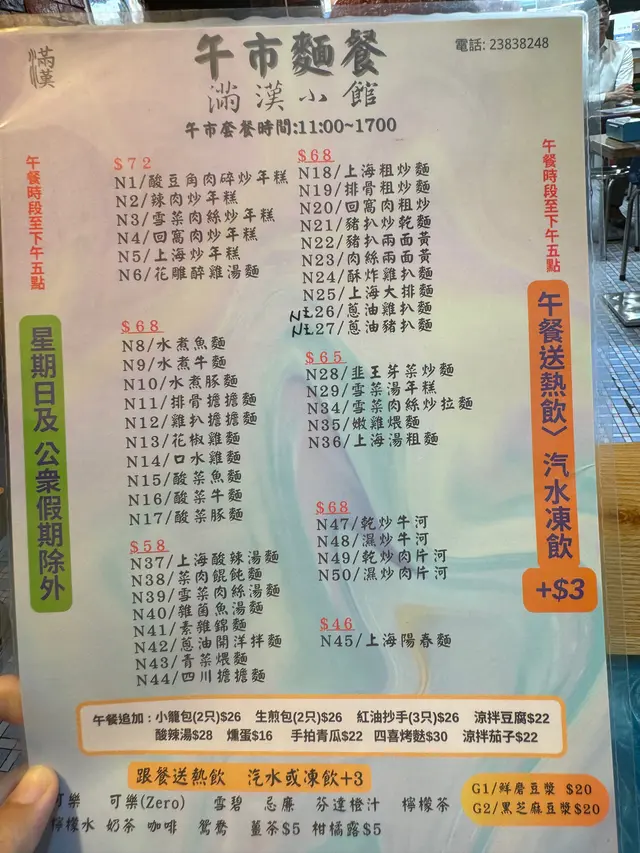 滿漢
午市麵餐
電話: 23838248
滿漢小館
午市套餐時間:11:00~1700
午餐時段至下午五點
星期日及 公衆假期除外
$72
N1/酸豆角肉碎炒年糕
N2/辣肉炒年糕
N3/雪菜肉絲炒年糕
N4/回窩肉炒年糕
N5/上海炒年糕
N6/花雕醉雞湯麵
$68
N8/水煮魚麵
N9/水煮牛麵
N10/水煮豚麵
N11/排骨擔擔麵
N12/雞扒擔擔麵
N13/花椒雞麵
N14/口水雞麵
N15/酸菜魚麵
N16/酸菜牛麵
N17/酸菜豚麵
$58
N37/上海酸辣湯麵
N38/菜肉餛飩麵
N39/雪菜肉絲湯麵
N40/雜菌魚湯麵
N41/素雜錦麵
N42/蔥油開洋拌麵
N43/青菜煨麵
N44/四川擔擔麵
$68
N18/上海粗炒麵
N19/排骨粗炒麵
N20/回窩肉粗炒
N21/豬扒炒乾麵
N22/豬扒兩面黃
N23/肉絲兩面黃
N24/酥炸雞扒麵
N25/上海大排麵
N26/蔥油雞扒麵
N27/蔥油豬扒麵
$65
N28/韭王芽菜炒麵
N29/雪菜湯年糕
N34/雪菜肉絲炒拉麵
N35/嫩雞煨麵
N36/上海湯粗麵
$68
N47/乾炒牛河
N48/濕炒牛河
N49/乾炒肉片河
N50/濕炒肉片河
$46
N45/上海陽春麵
午餐時段至下午五點
午餐送熱飲〉汽水凍飲
+$3
午餐追加：小籠包(2只)$26 生煎包(2只)$26 紅油抄手(3只)$26 涼拌豆腐$22
酸辣湯$28 燻蛋$16 手拍青瓜$22 四喜烤麩$30 涼拌茄子$22
跟餐送熱飲 汽水或凍飲+3
可樂 可樂(Zero) 雪碧 忌廉 芬達橙汁 檸檬茶
檸檬水 奶茶 咖啡 鴛鴦 薑茶$5 柑橘露$5
G1/鮮磨豆漿 $20
G2/黑芝麻豆漿$20